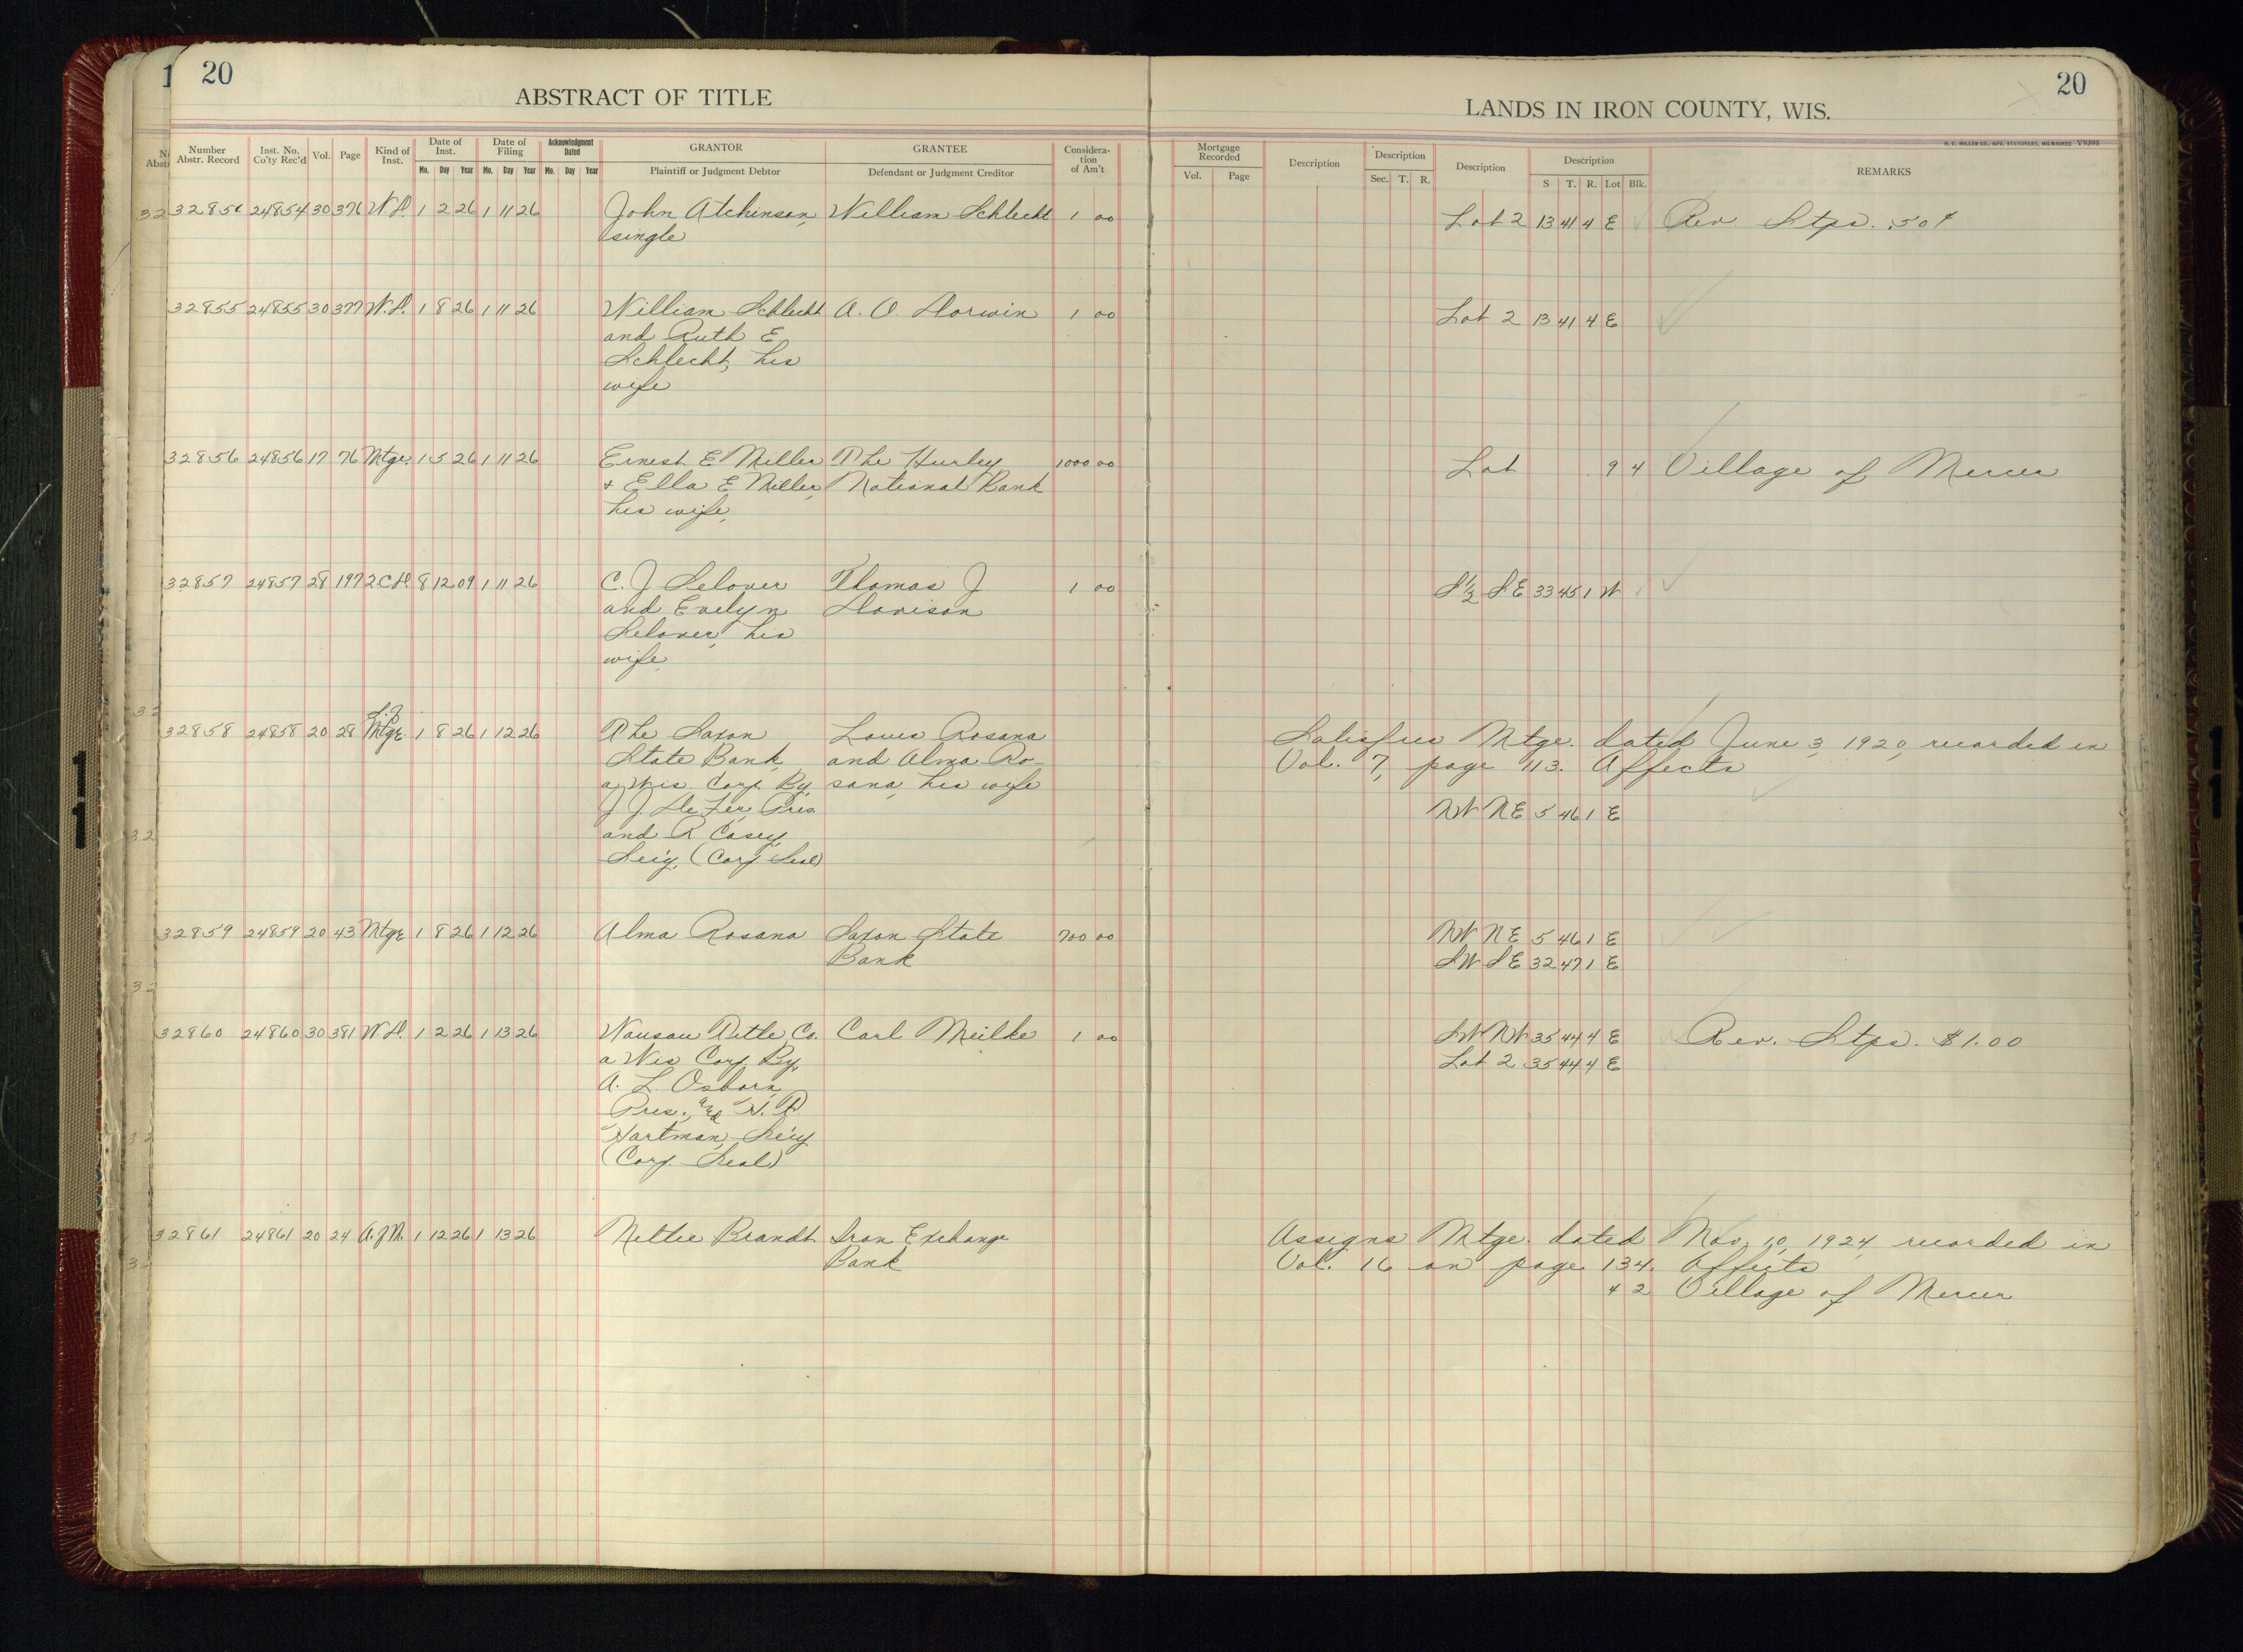 1 20
ABSTRACT OF TITLE
LANDS IN IRON COUNTY, WIS.
20
H. C. MILLER CO., MFG. STATIONERS, MILWAUKEE V9398
Number Abstr. Record Inst. No. Co'ty Rec'd Vol. Page Kind of Inst. Date of Inst. Date of Filing Acknowledgment Dated GRANTOR GRANTEE Considera-tion of Am't Mortgage Recorded Description Description Description Description REMARKS
Mo. Day Year Mo. Day Year Mo. Day Year Plaintiff or Judgment Debtor Defendant or Judgment Creditor Vol. Page Sec. T. R. S T. R. Lot Blk.
32854 24854 30 376 W.D. 1 2 26 1 11 26 John Atchinson, William Schlecht 1 00 Lot 2 13 41 4 E Rev Stps. .50¢
single
32855 24855 30 377 W.D. 1 8 26 1 11 26 William Schlecht A. O. Dorwin 1 00 Lot 2 13 41 4 E
and Ruth E
Schlecht, his
wife
32856 24856 17 76 Mtge. 1 5 26 1 11 26 Ernest E Miller The Hurley 1000 00 Lot 9 4 Village of Mercer
+ Ella E Miller, National Bank
his wife,
32857 24857 28 197 2CD. 8 12 09 1 11 26 C. J Selover Thomas J 1 00 S½ SE 33 45 1 W
and Evelyn Davison
Selover, his
wife,
32858 24858 20 28 Mtge. 1 8 26 1 12 26 The Saxon Louis Rosana Satisfies Mtge. dated June 3, 1920, recorded in
State Bank, and Alma Ro- Vol. 7, page 113. Affects
a Wis Corp. By, sana, his wife
J. J. De Fer, Pres. NW NE 5 46 1 E
and R Casey,
Sec'y, (Corp Seal)
32859 24859 20 43 Mtge 1 8 26 1 12 26 Alma Rosana Saxon State 700 00 NW NE 5 46 1 E
Bank SW SE 32 47 1 E
32860 24860 30 381 W.D. 1 2 26 1 13 26 Wausau Title Co. Carl Meilke 1 00 SW NW 35 44 4 E Rev. Stps. $1.00
a Wis Corp By, Lot 2 35 44 4 E
A. L Osborn,
Pres., and H. R
Hartman, Sec'y
(Corp. Seal)
32861 24861 20 24 A.of M. 1 12 26 1 13 26 Nettie Brandt Iron Exchange Assigns Mtge. dated Nov. 10, 1924 recorded in
Bank Vol. 16 on page 134. Affects
4 2 Village of Mercer